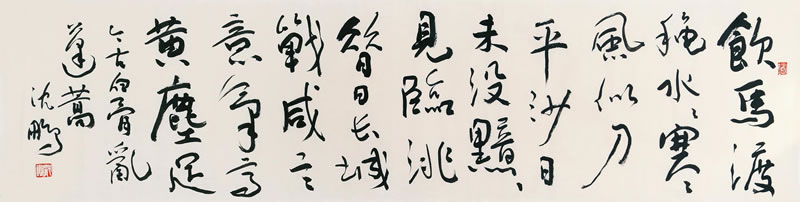 飲馬渡
穐水〻寒
風似刀
平沙日
未没黯〻
見臨洮
昔日长城
戰咸言
意氣高
黄塵足
今古白骨亂
蓬蒿
沈鵬